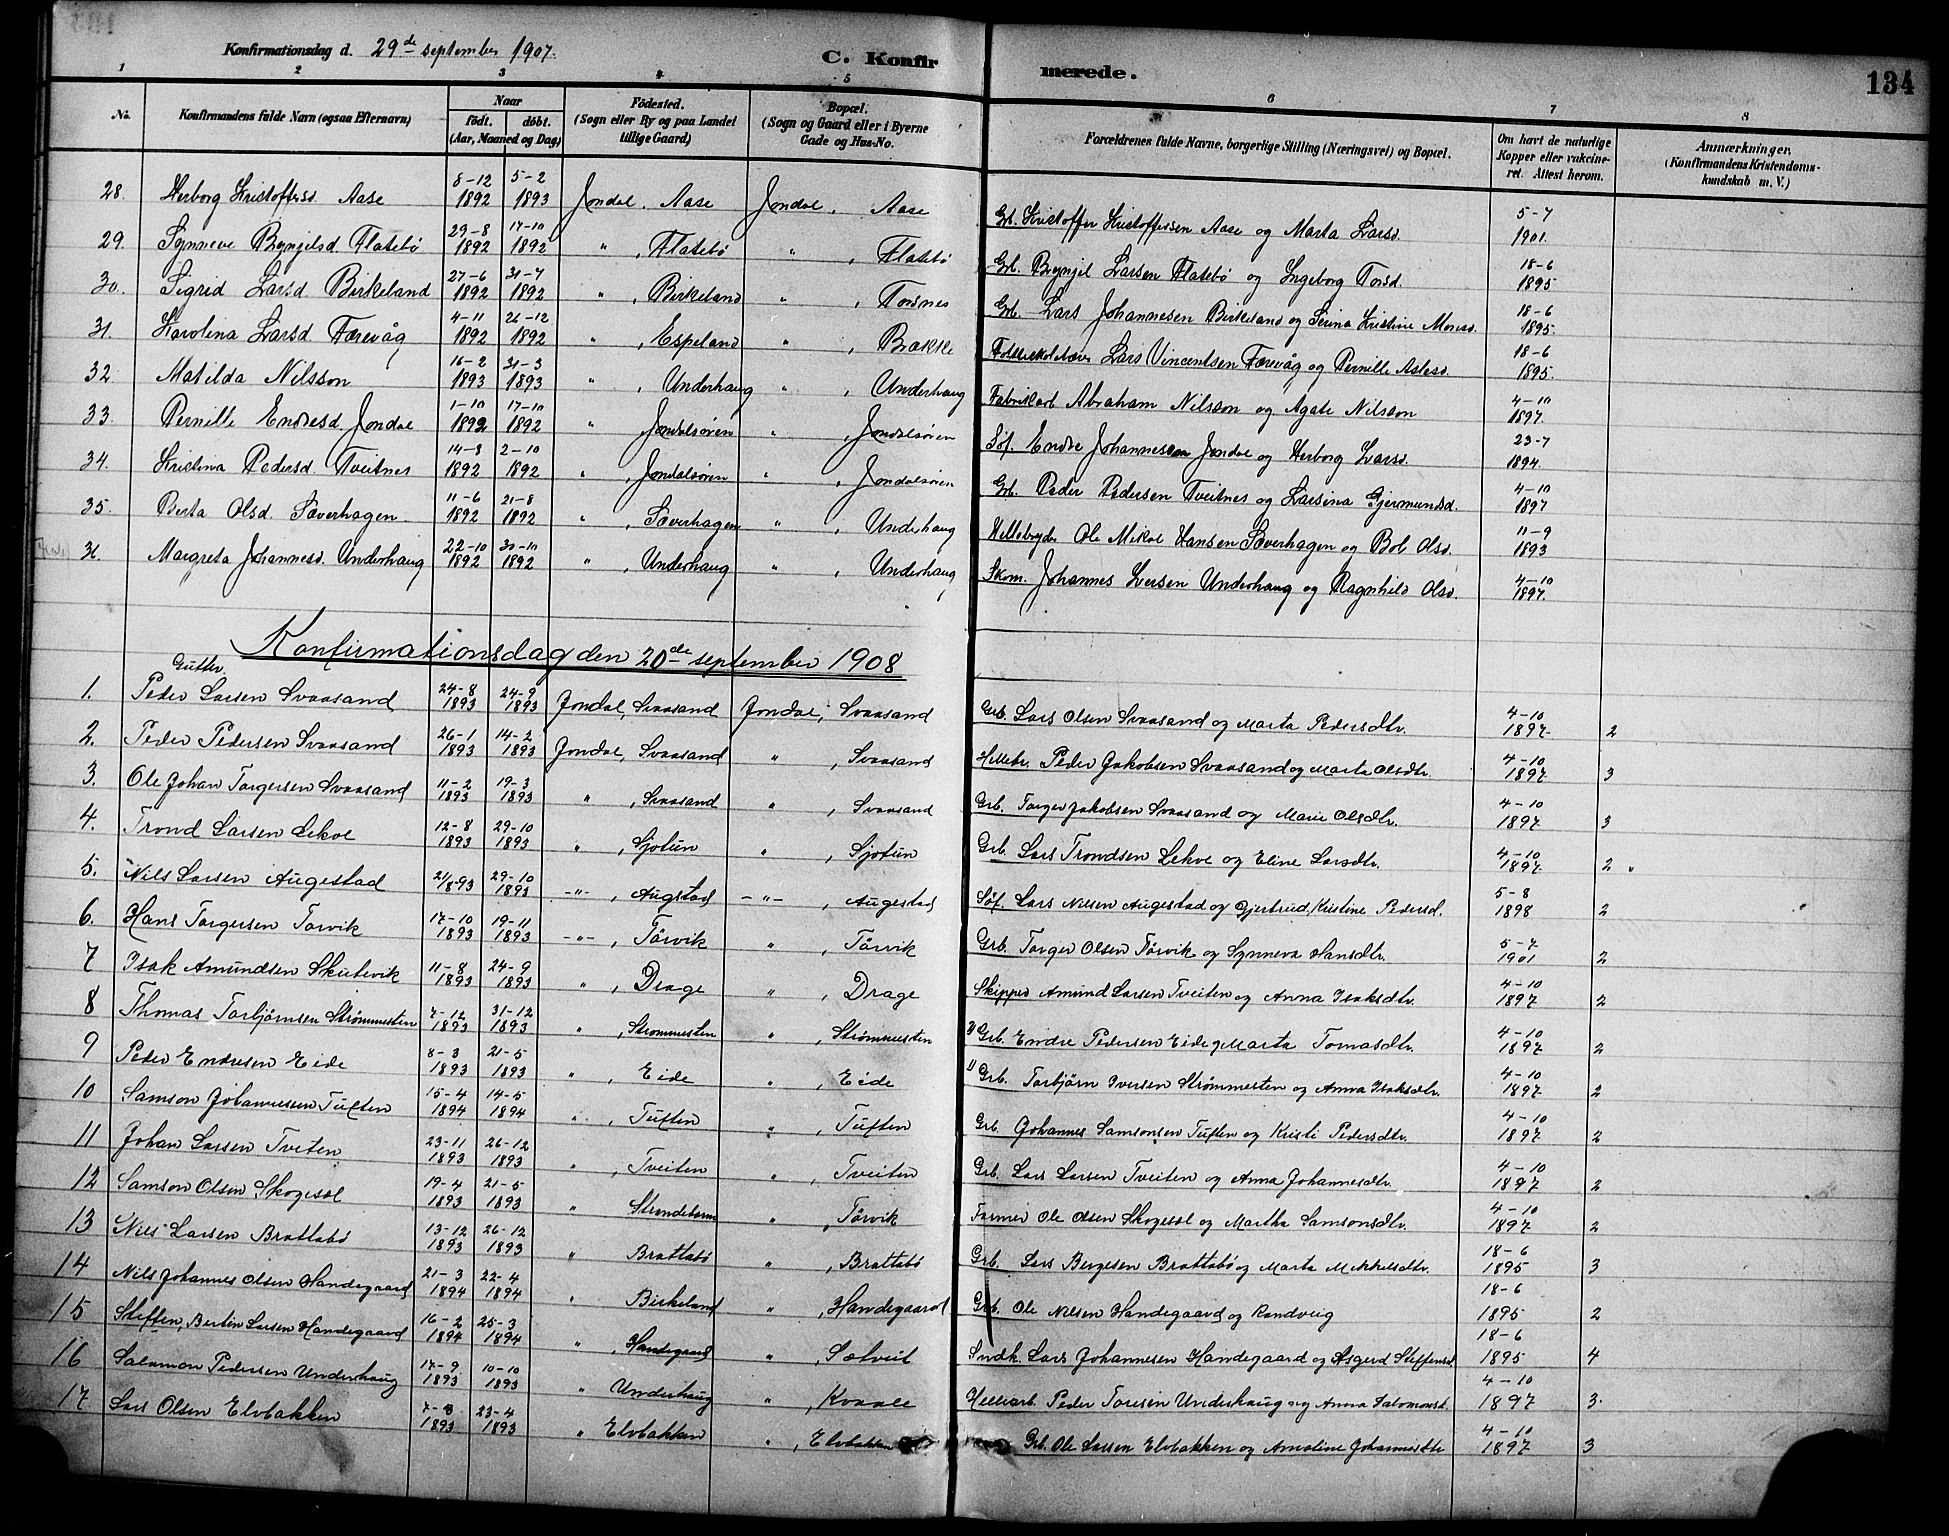 Konfirmationsdag d. 29de september 1907.
C. Konfirmerede.
134
1 2 3 4 5 6 7 8
No.
Konfirmandens fulde Navn (ogsaa Efternavn)
Naar
födt. döbt.
(Aar, Maaned og Dag)
Födested.
(Sogn eller By og paa Landet tillige Gaard)
Bopæl.
(Sogn og Gaard eller i Byerne Gade og Hus-No.
Forældrenes fulde Navne, borgerlige Stilling (Næringsvei) og Bopæl.
Om havt de naturlige Kopper eller vakcineret. Attest herom.
Anmærkninger.
(Konfirmandens Kristendomskundskab m. V.)
28. Herborg Kristoffersd. Aase 8-12 1892 5-2 1893 Jondal, Aase Jondal, Aase Grb. Kristoffer Kristoffersen Aase og Marta Larsd. 5-7 1901.
29. Synneve Brynjelsd Flatebö 29-8 1892 17-10 1892 " , Flatebö " , Flatebö Grb. Brynjel Larsen Flatebö og Ingeborg Torsd. 18-6 1895
30. Sigrid Larsd Birkeland 27-6 1892 31-7 1892 " , Birkeland " , Torsnes Grb. Lars Johannesen Birkeland og Serina Kristine Monsd. 18-6 1895.
31. Karolina Larsd. Færevåg 4-11 1892 26-12 1892 " , Espeland " , Brække Lars Vincentsen Færevåg og Pernille Aslesd. 18-6 1895.
32. Matilda Nilsson 16-2 1893 31-3 1893 " , Underhaug " , Underhaug Fabrikarb Abraham Nilsson og Agate Nilsson 4-10 1897.
33. Pernille Endresd. Jondal 1-10 1892 17-10 1892 " , Jondalsören " , Jondalsören Söf. Endre Johannessen Jondal og Herborg Larsd. 23-7 1894.
34. Kristina Pedersd. Tveitnes 14-8 1892 2-10 1892 " , Jondalsören " , Jondalsören Grb. Peder Pedersen Tveitnes og Larsina Gjermundsd. 4-10 1897
35. Berta Olsd. Sæverhagen 11-6 1892 21-8 1892 " , Sæverhagen " , Underhaug Hellebryder Ole Mikal Hansen Sæverhagen og Bol Olsd. 11-9 1893
36. Margreta Johannesd. Underhaug 22-10 1892 30-10 1892 " , Underhaug " , Underhaug Skom. Johannes Iversen Underhaug og Ragnhild Olsd. 4-10 1897.
Konfirmationsdag den 20de september 1908
Gutter
1. Peder Larsen Svaasand 24-8 1893 24-9 1893 Jondal, Svaasand Jondal, Svaasand Grb. Lars Olsen Svaasand og Marta Pedersdtr. 4-10 1897. 2
2. Peder Pedersen Svaasand 26-1 1893 14-2 1893 Jondal, Svaasand " , Svaasand Hellebr. Peder Jakobsen Svaasand og Marta Olsdtr. 4-10 1897 3
3. Ole Johan Torgersen Svaasand 11-2 1893 19-3 1893 " , Svaasand " , Svaasand Grb. Torger Jakobsen Svaasand og Marie Olsdtr. 4-10 1897 3
4. Trond Larsen Lekve 12-8 1893 29-10 1893 " , Sjotun " , Sjotun Grb. Lars Trondsen Lekve og Eline Larsdtr. 4-10 1897. 2 "
5. Nils Larsen Augestad 21/8-93 29-10 1893 -"- , Augstad -"- , Augestad Söf. Lars Nilsen Augestad og Gjertrud Kristine Pedersd. 5-8 1898 2
6. Hans Torgersen Torvik 17-10 1893 19-11 1893 -"- , Törvik " , Törvik Grb. Torger Olsen Törvik og Synneva Hansdtr. 5-7 1901 2
7 Isak Amundsen Skutevik 11-8 1893 24-9 1893 " , Drage " , Drage Skipper Amund Larsen Tveiten og Anna Isaksdtr. 4-10 1897 2
8 Thomas Torbjörnsen Strömmesten 7-12 1893 31-12 1893 " , Strommesten " , Strömmesten Grb. Endre Pedersen Eide og Marta Tomasdtr. 4-10 1897 2
9 Peder Endresen Eide 8-3 1893 21-5 1893 " , Eide " , Eide 1) Grb. Torbjörn Iversen Strömmesten og Anna Isaksdtr. 4-10 1897. 2
10 Samson Johannesen Tuften 15-4 1894 14-5 1894 " , Tuften " , Tuften Grb. Johannes Samsonsen Tuften og Kristi Pedersdtr. 4-10 1897 2
11 Johan Larsen Tveiten 23-11 1893 26-12 1893 " , Tveiten " , Tveiten Grb. Lars Larsen Tveiten og Anna Johannesdtr. 4-10 1897 2
12 Samson Olsen Skogesal 19-4 1893 21-5 1893 " Strandebarm " , Törvik Farmer Ole Olsen Skogesal og Martha Samsonsdtr. 4-10 1897 2
13 Nils Larsen Brattabö 13-12 1893 26-12 1893 " Brattabö " , Brattabö Grb. Lars Bergesen Brattabö og Marta Mikkelsdtr. 18-6 1895 3
14 Nils Johannes Olsen Handegaard 21-3 1894 22-4 1894 " Birkeland " , Handegaard Grb. Ole Nilsen Handegaard og Randveig 18-6 1895 2
15 Steffen, Bertin Larsen Handegaard 16-2 1894 25-3 1894 " , Handegaard " , Sætveit Sndk. Lars Johannesen Handegaard og Asgerd Steffensd 18-6 1895 4
16 Salamon Pedersen Underhaug 17-9 1893 10-10 1893 " Underhaug " , Kvaale Hellearb. Peder Toresen Underhaug og Anna Salomonsd. 4-10 1897 3.
17 Lars Olsen Elvbakken 7-3 1893 23-4 1893 " Elvbakken " , Elvbakken Grb. Ole Larsen Elvbakken og Amaline Johannesdtr 4-10 1897 3